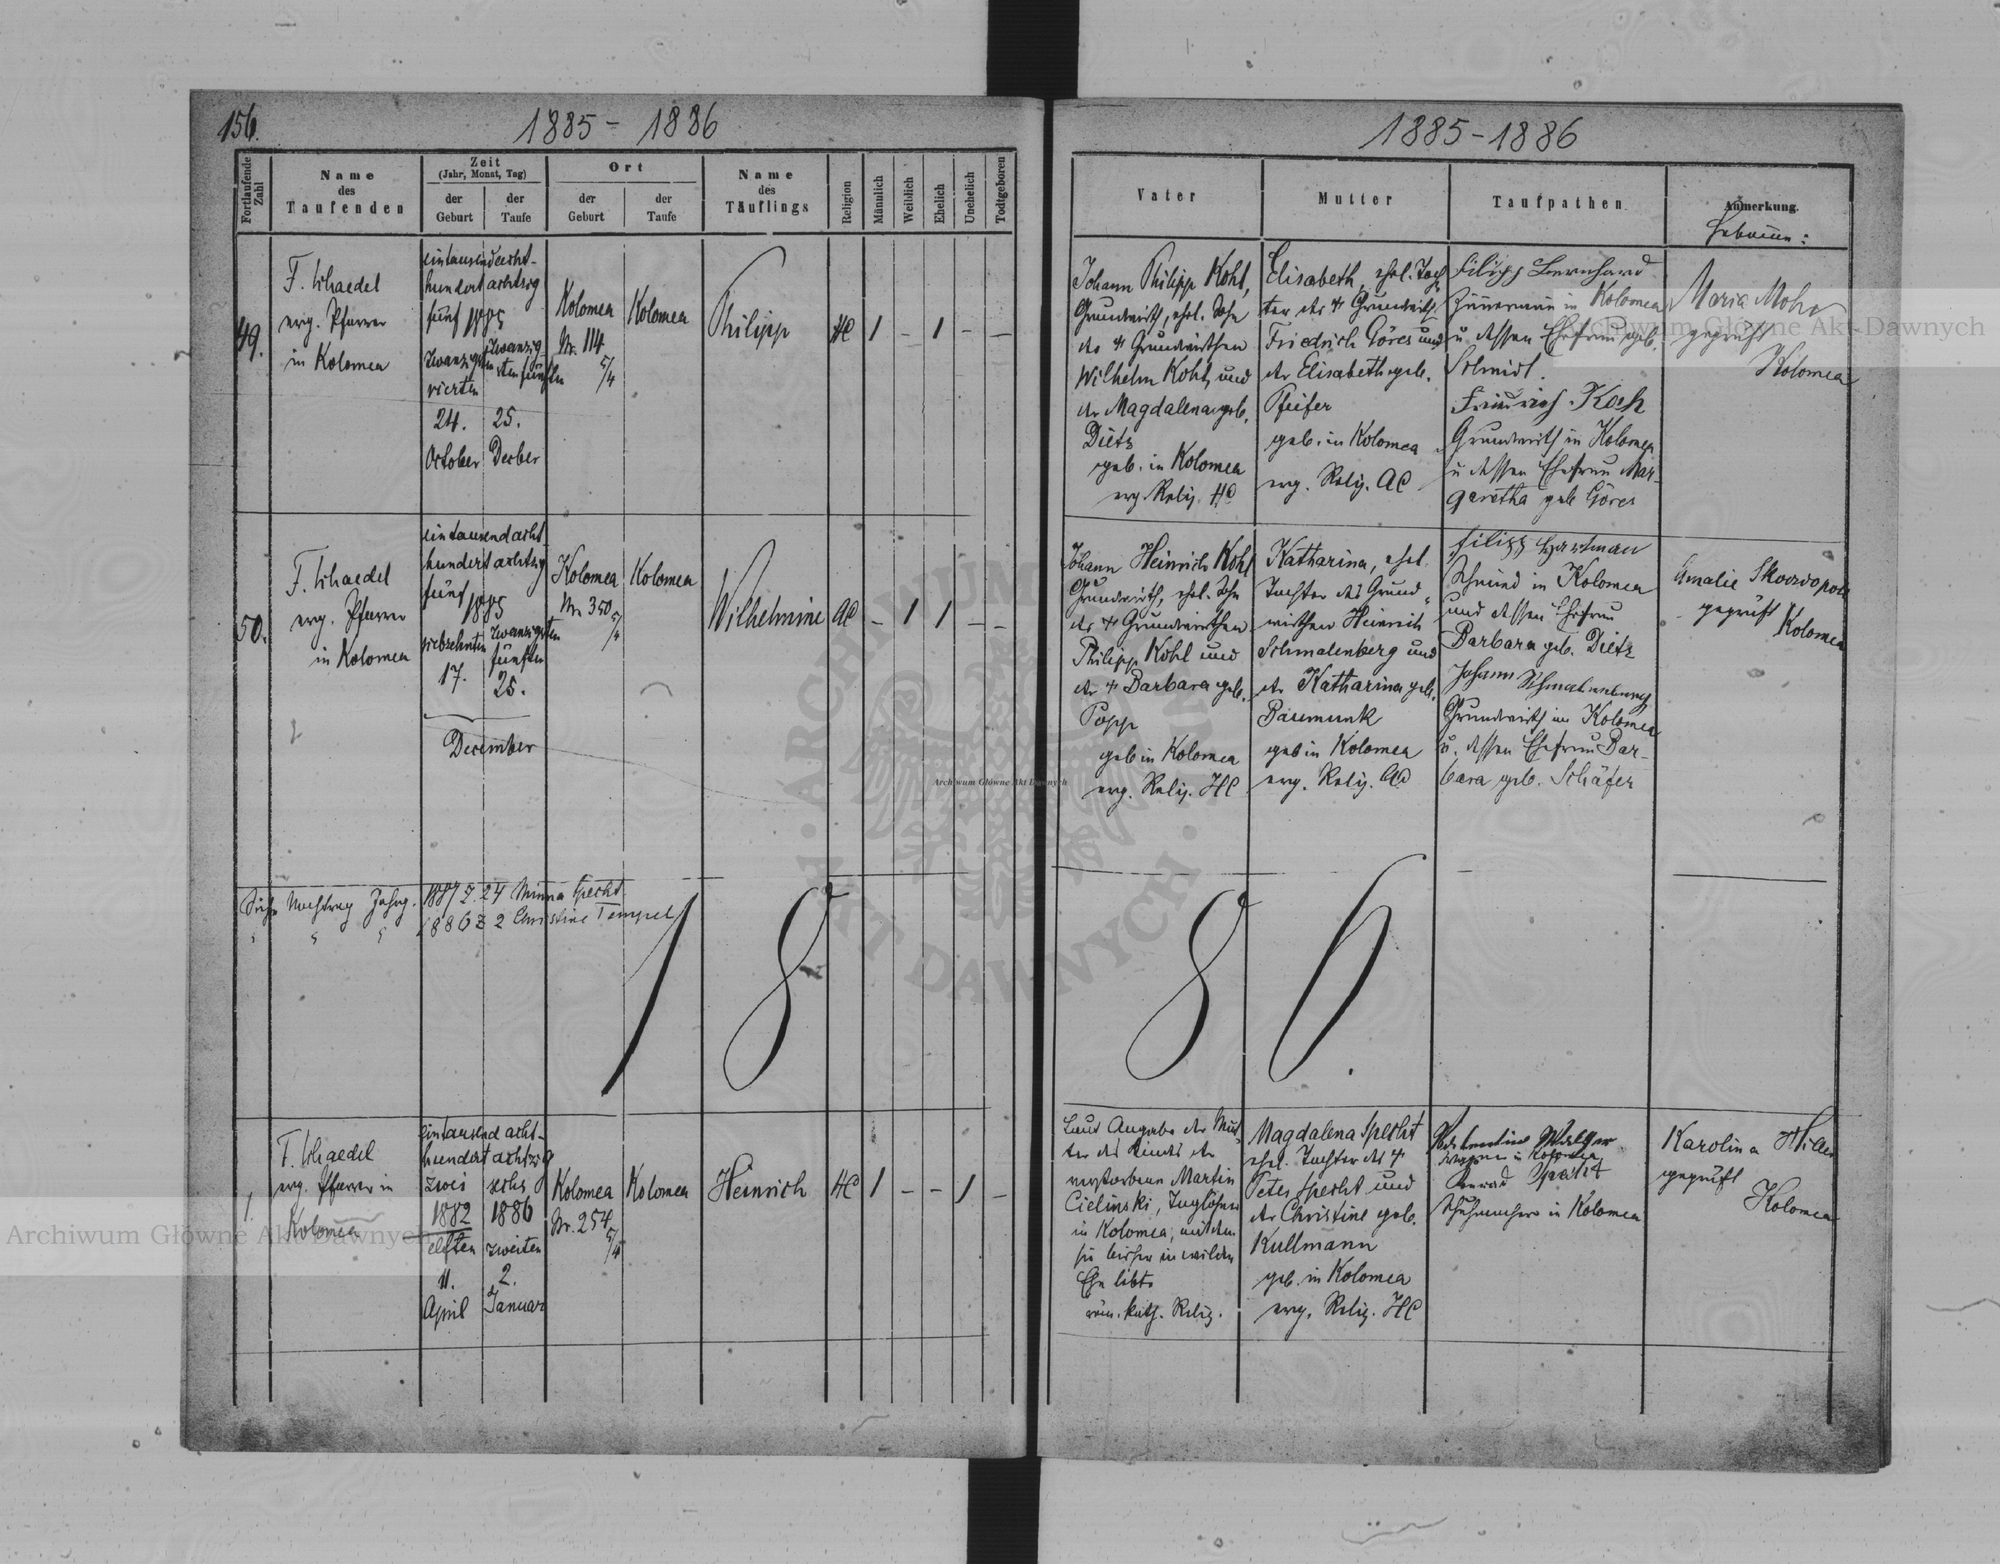 156.
1885 - 1886
Fortlaufende Zahl
Name
des
Taufenden
Zeit
(Jahr, Monat, Tag)
der Geburt
der Taufe
Ort
der Geburt
der Taufe
Name
des
Täuflings
Religion
Männlich
Weiblich
Ehelich
Unehelich
Todtgeboren
1885-1886
Vater
Mutter
Taufpathen
Anmerkung.
Hebamme:
49.
F. Schaedel
erg. Pfarrer
in Kolomea
eintausendacht-
hundert achtzig
fünf 1885
zwanzigsten
vierten
24.
October
zwanzig-
sten fünften
25.
Decber
Kolomea
Nr. 114
5/4
Kolomea
Philipp
HC
1
-
1
-
-
Johann Philipp Kohl,
Grundwirth, ehel. Sohn
des † Grundwirthen
Wilhelm Kohl, und
der Magdalena geb.
Dietz
geb. in Kolomea
erg. Relig. HC
Elisabeth, ehel. Toch-
ter des † Grundwirth.
Friedrich Göres und
der Elisabeth geb.
Pfeifer
geb. in Kolomea
erg. Relig. AC
Filipp Bernhard
Zimmermann in Kolomea
u dessen Ehefrau geb.
Schmidt.
Friedrich Koch
Grundwirth in Kolomea
u dessen Ehefrau Mar-
garetha geb Göres
Maria Mohr
geprüft
Kolomea
50.
F. Schaedel
erg. Pfarrer
in Kolomea
eintausendacht-
hundert achtzig
fünf
1885
siebzehnten
17.
zwanzigsten
fünften
25.
December
Kolomea
Nr. 350
5/4
Kolomea
Wilhelmine
AC
-
1
1
-
-
Johann Heinrich Kohl
Grundwirth, ehel. Sohn
des † Grundwirthen
Philipp Kohl und
der † Barbara geb.
Popp
geb in Kolomea
erg. Relig. HC
Katharina, ehel.
Tochter des Grund-
wirthen Heinrich
Schmalenberg und
der Katharina geb.
Baumunk
geb in Kolomea
erg. Relig. AC
Filipp Hartman
Schmied in Kolomea
und dessen Ehefrau
Barbara geb. Dietz
Johann Schmalenberg
Grundwirth in Kolomea
u. dessen Ehefrau Bar-
bara geb. Schäfer
Amalie
geprüft
Kolomea
Siehe Nachtrag Jahrg. 1887 Z. 24 Minna Specht
" " " 1886 Z 2 Christine Tempel
1 8 8 6.
1.
F. Schaedel
erg. Pfarrer in
Kolomea
eintausend acht-
hundert achtzig
zwei
1882
elften
11.
April
sechs
1886
zweiten
2.
Januar
Kolomea
Nr. 254
5/4
Kolomea
Heinrich
HC
1
-
-
1
-
Laut Angabe der Mut-
ter des Kindes der
verstorbene Martin
Cielinski, Taglöhner
in Kolomea, mit dem
sie bisher in wilder
Ehe lebte
röm. kath. Relig.
Magdalena Specht
ehel. Tochter des †
Peter Specht und
der Christine geb.
Kullmann
geb. in Kolomea
erg. Relig. HC
in Kolomea
Konrad Specht
Schuhmacher in Kolomea
Karolina Hiller
geprüft
Kolomea
Archiwum Główne Akt Dawnych
Archiwum Główne Akt Dawnych
Archiwum Główne Akt Dawnych
ARCHIWUM GŁÓWNE AKT DAWNYCH